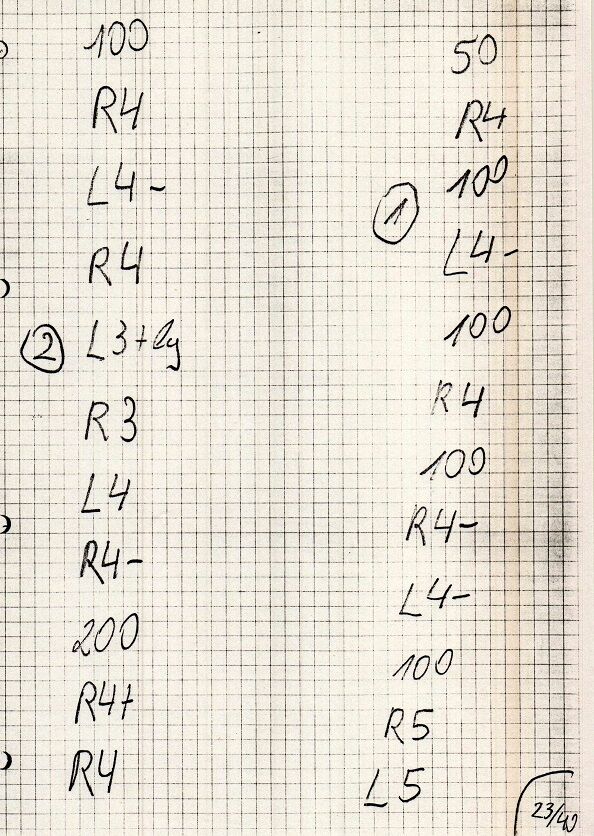 100
R4
L4-
R4
② L3+lg
R3
L4
R4-
200
R4+
R4
50
R4
100
①
L4-
100
R4
100
R4-
L4-
100
R5
L5
23/40